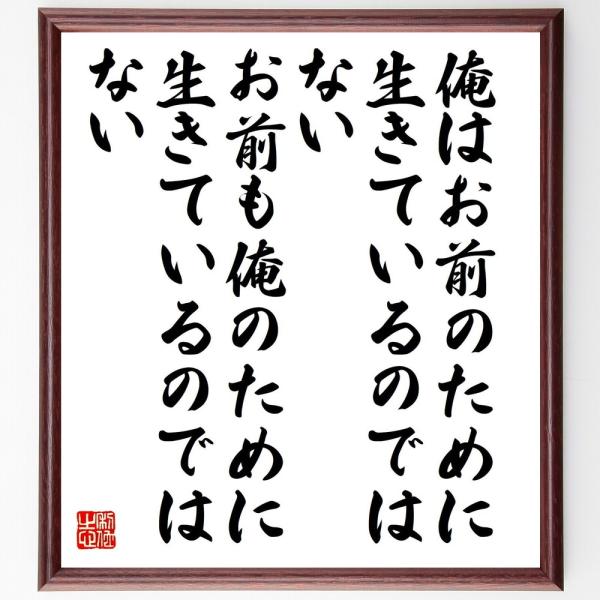 俺はお前のために
生きているのでは
ない
お前も俺のために
生きているのでは
ない